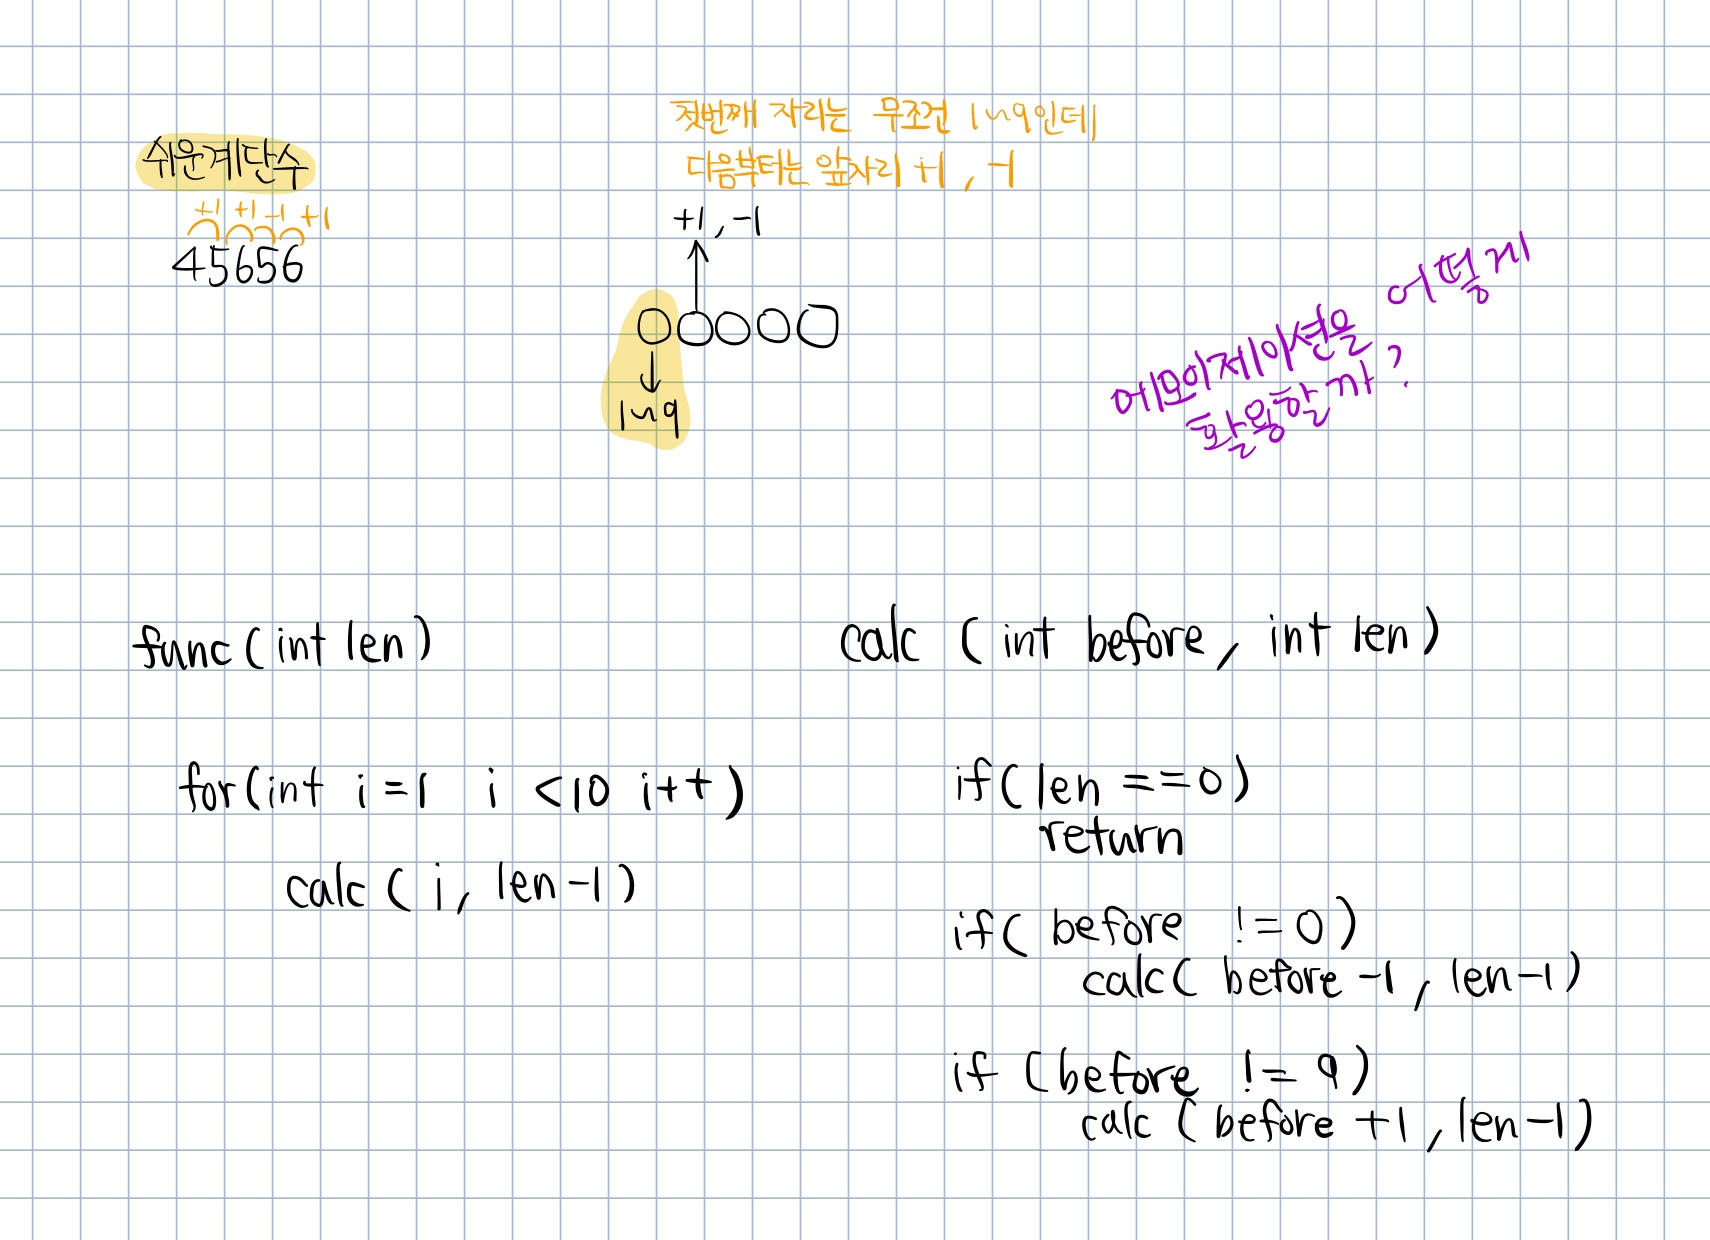 쉬운계단수
+1 +1 -1 +1
45656
첫번째 자리는 무조건 1~9인데
다음부터는 앞자리 +1, -1
+1, -1
1~9
에모이제이션을 어떻게
활용할까?
func(int len)
for(int i=1 i <10 i++)
calc( i, len-1)
calc (int before, int len)
if(len ==0)
return
if( before !=0)
calc( before -1, len-1)
if (before != 9)
calc ( before +1, len-1)